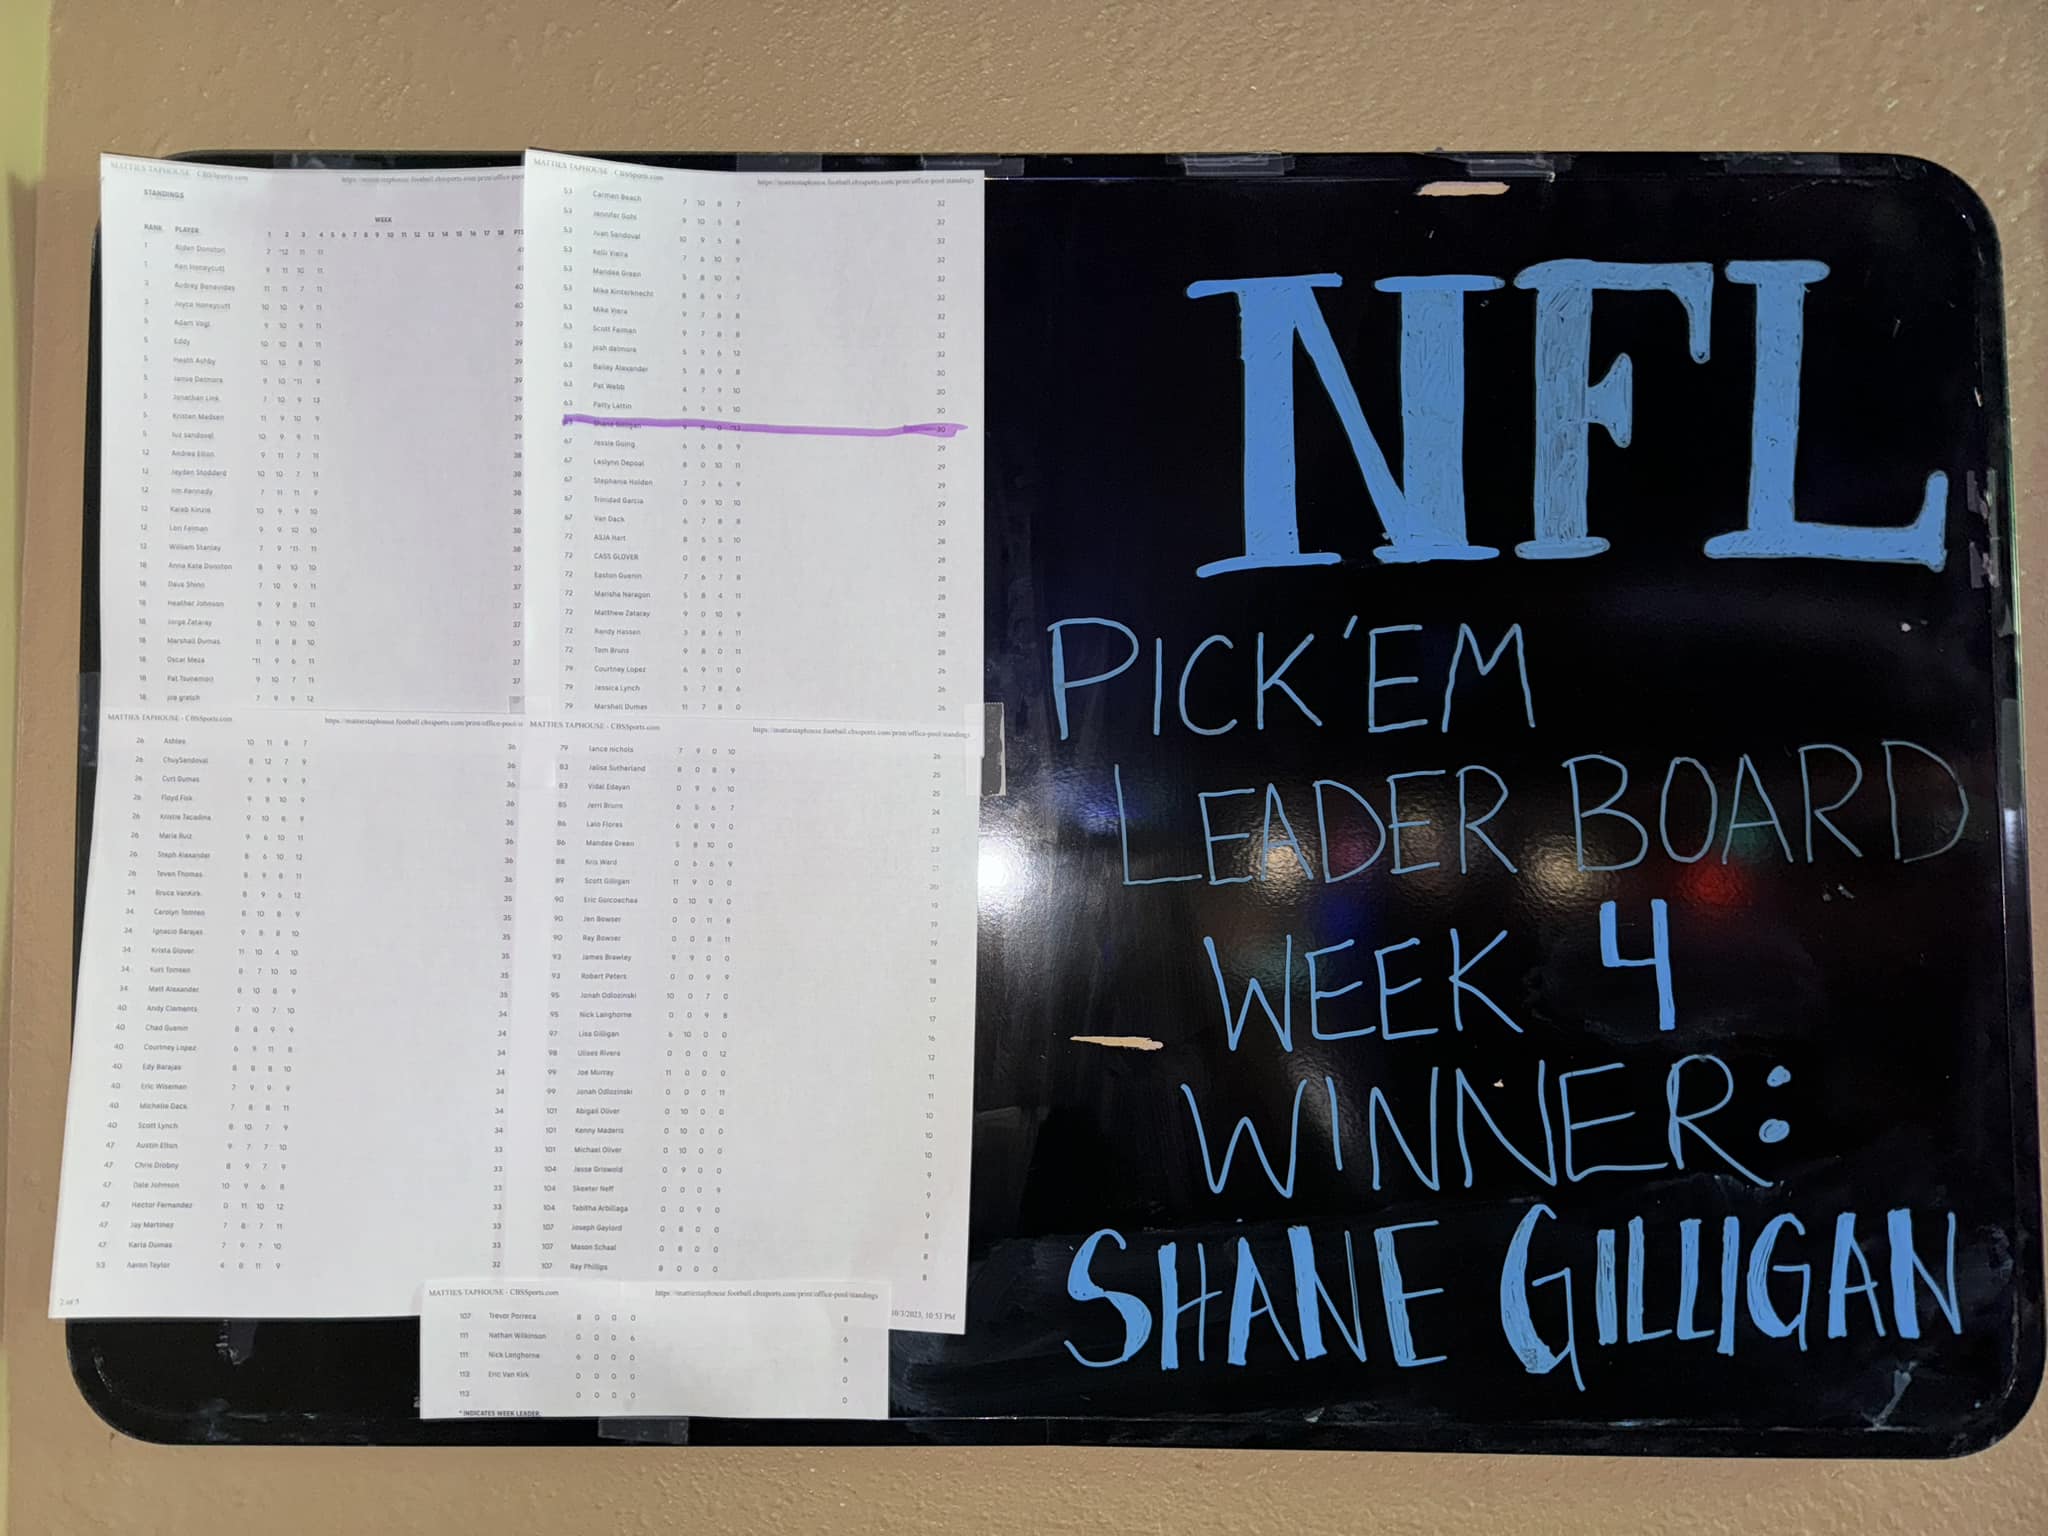 MATTIES TAPHOUSE - CBSSports.com
https://mattiestaphouse.football.cbssports.com/print/office-pool/standings
STANDINGS
WEEK
RANK PLAYER 1 2 3 4 5 6 7 8 9 10 11 12 13 14 15 16 17 18
1 Aiden Donston 7 *12 11 11
1 Ken Honeycutt 9 11 10 11
3 Audrey Benavides 11 11 7 11 40
3 Joyce Honeycutt 10 10 9 11 40
5 Adam Vogl 9 10 9 11 39
5 Eddy 10 10 8 11 39
5 Heath Ashby 10 10 9 10 39
5 Janue Delmore 9 10 *11 9 39
5 Jonathan Link 7 10 9 13 39
5 Kristen Madsen 11 9 10 9 39
5 luz sandoval 10 9 9 11 39
12 Andrea Elton 9 11 7 11 38
12 Jayden Stoddard 10 10 7 11 38
12 Jim Kennedy 7 11 11 9 38
12 Kaleb Kinzie 10 9 9 10 38
12 Lori Feiman 9 9 10 10 38
12 William Stanley 7 9 *11 11 38
18 Anna Kate Donston 8 9 10 10 37
18 Dave Shinn 7 10 9 11 37
18 Heather Johnson 9 9 8 11 37
18 Jorge Zataray 8 9 10 10 37
18 Marshall Dumas 11 8 8 10 37
18 Oscar Meza *11 9 6 11 37
18 Pat Tsunemori 9 10 7 11 37
18 joe gretch 7 9 9 12
MATTIES TAPHOUSE - CBSSports.com
https://mattiestaphouse.football.cbssports.com/print/office-pool/s
26 Ashlee 10 11 8 7 36
26 ChuySandoval 8 12 7 9 36
26 Curt Dumas 9 9 9 9 36
26 Floyd Fisk 9 8 10 9 36
26 Kristie Tacadina 9 10 8 9 36
26 Maria Ruiz 9 6 10 11 36
26 Steph Alexander 8 6 10 12 36
26 Teven Thomas 8 9 8 11 36
34 Bruce VanKirk 8 9 6 12 35
34 Carolyn Tomren 8 10 8 9 35
34 Ignacio Barajas 9 8 8 10 35
34 Krista Glover 11 10 4 10 35
34 Kurt Tomren 8 7 10 10 35
34 Matt Alexander 8 10 8 9 35
40 Andy Clements 7 10 7 10 34
40 Chad Guenin 8 8 9 9 34
40 Courtney Lopez 6 9 11 8 34
40 Edy Barajas 8 8 8 10 34
40 Eric Wiseman 7 9 9 9 34
40 Michelle Dack 7 8 8 11 34
40 Scott Lynch 8 10 7 9 34
47 Austin Elton 9 7 7 10 33
47 Chris Drobny 8 9 7 9 33
47 Dale Johnson 10 9 6 8 33
47 Hector Fernandez 0 11 10 12 33
47 Jay Martinez 7 8 7 11 33
47 Karla Dumas 7 9 7 10 33
53 Aaron Taylor 4 8 11 9 32
2 of 5
MATTIES TAPHOUSE - CBSSports.com
https://mattiestaphouse.football.cbssports.com/print/office-pool/standings
53 Carmen Beach 7 10 8 7 32
53 Jennifer Gohl 9 10 5 8 32
53 Juan Sandoval 10 9 5 8 32
53 Kelli Vieira 7 6 10 9 32
53 Mandee Green 5 8 10 9 32
53 Mike Kinterknecht 8 8 9 7 32
53 Mike Viera 9 7 8 8 32
53 Scott Feiman 9 7 8 8 32
53 josh delmore 5 9 6 12 32
63 Bailey Alexander 5 8 9 8 30
63 Pat Webb 4 7 9 10 30
63 Patty Lattin 6 9 5 10 30
63 Shane Gilligan 9 8 0 *13 30
67 Jessie Going 6 6 8 9 29
67 Leslynn Depoal 8 0 10 11 29
67 Stephanie Holden 7 7 6 9 29
67 Trinidad Garcia 0 9 10 10 29
67 Van Dack 6 7 8 8 29
72 ASJA Hart 8 5 5 10 28
72 CASS GLOVER 0 8 9 11 28
72 Easton Guenin 7 6 7 8 28
72 Marisha Naragon 5 8 4 11 28
72 Matthew Zataray 9 0 10 9 28
72 Randy Hassen 3 8 6 11 28
72 Tom Bruns 9 8 0 11 28
79 Courtney Lopez 6 9 11 0 26
79 Jessica Lynch 5 7 8 6 26
79 Marshall Dumas 11 7 8 0 26
MATTIES TAPHOUSE - CBSSports.com
https://mattiestaphouse.football.cbssports.com/print/office-pool/standings
79 lance nichols 7 9 0 10 26
83 Jalisa Sutherland 8 0 8 9 25
83 Vidal Edayan 0 9 6 10 25
85 Jerri Bruns 6 5 6 7 24
86 Lalo Flores 6 8 9 0 23
86 Mandee Green 5 8 10 0 23
88 Kris Ward 0 6 6 9 21
89 Scott Gilligan 11 9 0 0 20
90 Eric Goicoechea 0 10 9 0 19
90 Jen Bowser 0 0 11 8 19
90 Ray Bowser 0 0 8 11 19
93 James Brawley 9 9 0 0 18
93 Robert Peters 0 0 9 9 18
95 Jonah Odlozinski 10 0 7 0 17
95 Nick Langhorne 0 0 9 8 17
97 Lisa Gilligan 6 10 0 0 16
98 Ulises Rivera 0 0 0 12 12
99 Joe Murray 11 0 0 0 11
99 Jonah Odlozinski 0 0 0 11 11
101 Abigail Oliver 0 10 0 0 10
101 Kenny Maderis 0 10 0 0 10
101 Michael Oliver 0 10 0 0 10
104 Jesse Griswold 0 9 0 0 9
104 Skeeter Neff 0 0 0 9 9
104 Tabitha Arbillaga 0 0 9 0 9
107 Joseph Gaylord 0 8 0 0 8
107 Mason Schaal 0 8 0 0 8
107 Ray Phillips 8 0 0 0 8
10/3/2023, 10:53 PM
MATTIES TAPHOUSE - CBSSports.com
https://mattiestaphouse.football.cbssports.com/print/office-pool/standings
107 Trevor Porreca 8 0 0 0 8
111 Nathan Wilkinson 0 0 0 6 6
111 Nick Langhorne 6 0 0 0 6
113 Eric Van Kirk 0 0 0 0 0
113 0 0 0 0 0
* INDICATES WEEK LEADER
NFL
PICK'EM
LEADER BOARD
WEEK 4
WINNER:
SHANE GILLIGAN